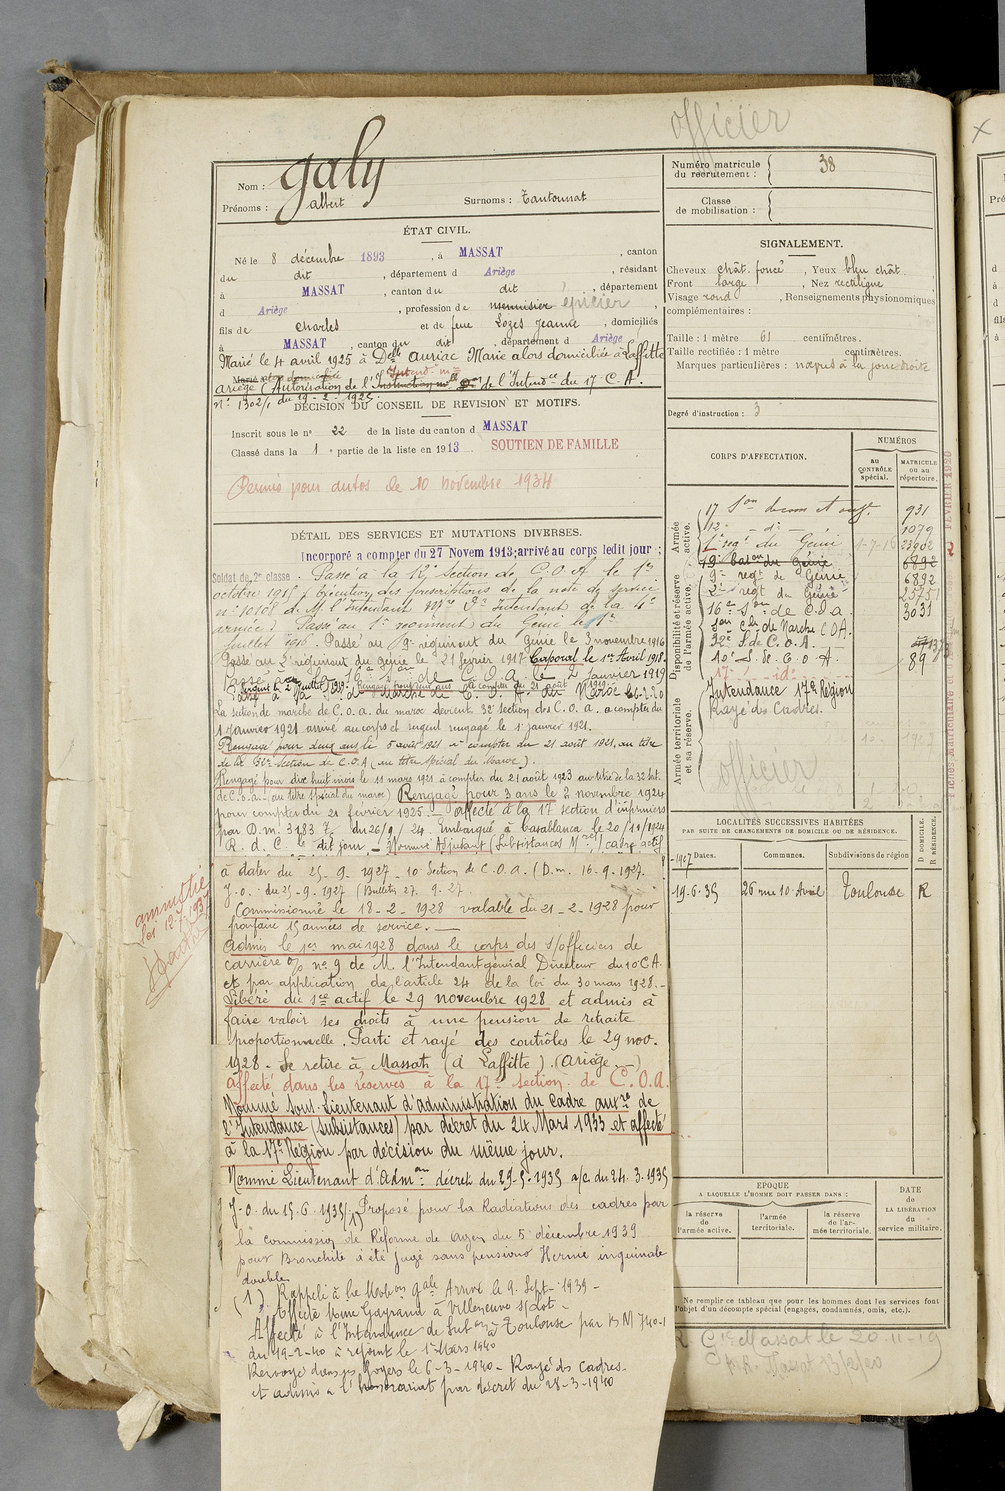 officier
Nom : Galy
Prénoms : albert Surnoms : Tantounat
ÉTAT CIVIL.
Né le 8 décembre 1893, à MASSAT, canton
du dit, département d Ariège, résidant
à MASSAT, canton du dit, département
d Ariège, profession de menuisier épicier
fils de Charles et de feue Lozes Jeanne, domiciliés
à MASSAT, canton du dit, département d Ariège
Marié le 4 avril 1925 à Delle Auriac Marie alors domiciliée à Laffitte
ariège (Autorisation de l'Intend de l'Intend ce du 17e C. A.
n° 1302/1 du 19-2-1925.
DÉCISION DU CONSEIL DE REVISION ET MOTIFS.
Inscrit sous le n° 22 de la liste du canton d MASSAT
Classé dans la 1e partie de la liste en 1913 SOUTIEN DE FAMILLE
Permis pour autos le 10 novembre 1934
DÉTAIL DES SERVICES ET MUTATIONS DIVERSES.
Incorporé a compter du 27 Novem 1913; arrivé au corps ledit jour;
Soldat de 2e classe. Passé à la 12e Section de C.O.A. le 1er
octobre 1915 Exécution des prescriptions de la note de service
n° 10108 de M. l'Intendant Mre Intendant de la 4e
armée). Passé au 1er régiment du Génie le 1er
Juillet 1916. Passé au 9e régiment du génie le 3 novembre 1916
Passé au 2e régiment du Génie le 21 février 1917 Caporal le 1er Avril 1918.
Passé à la 16e Son de C.O.A. le 2 Janvier 1919
Sergent le 2 Juillet 1919. Rengagé pour un an à compter du 21 août 1919
Passé à la Son de marche de C. O. A. du Maroc le 6-2-20
La section de marche de C.O.a. du maroc devient 32e Section des C.O.a. a compter du
1 Janvier 1921 arrivé au corps et sergent rengagé le 1er janvier 1921.
Rengagé pour deux ans le 5 août 1921 à compter du 21 août 1921, au titre
de la 32e Section de C.O.A (au titre spécial du Maroc).
Rengagé pour dix huit mois le 11 mars 1921 à compter du 21 août 1923 au titre de la 32 Son
de C.o.a. au titre spécial du maroc) Rengagé pour 3 ans le 2 novembre 1924
pour compter du 21 février 1925. affecté à la 17 section d'infirmiers
par D.m. 3183 7/5 du 26/9/24. Embarqué à Casablanca le 20/11/1924
R. d. C. le dit jour. Nommé Adjudant (Subsistances Mres) cadre actif
à dater du 25-9-1927 - 10e Section de C.O.a. (D.m. 16-9-1927.
J.O. du 25-9-1927 (Bulletin 27.9.27.
Commissionné le 18-2-1928 valable du 21-2-1928 pour
parfaire 15 années de service.
Admis le 1er mai 1928 dans le corps des s/officiers de
carrière o/ n° 9 de M. l'Intendant général Directeur du 10e C.A.
et par application de l'article 24 de la loi du 30 mars 1928.
Libéré du sce actif le 29 novembre 1928 et admis à
faire valoir ses droits à une pension de retraite
proportionnelle. Parti et rayé des contrôles le 29 nov.
1928. Se retire à Massat (à Laffitte) (Ariège)
Affecté dans les réserves à la 17e section de C.O.a.
Nommé Sous-Lieutenant d'administration du cadre auxre de
l'Intendance (subsistances) par décret du 24 Mars 1933 et affecté
à la 17e Région par décision du même jour.
Nommé Lieutenant d'Admon décret du 29-5-1935 a/c du 24.3.1935
J-O. du 15.6.1935/(1) Proposé pour la Radiation des cadres par
la commission de Réforme de Agen du 5 décembre 1939
pour Bronchite à été jugé sans pension Hernie inguinale
double
(1) Rappelé à la Mobon gale Arrivé le 9 Sept. 1939 -
Affecté Usine Gayrand à Villeneuve s/Lot -
Affecté à l'Intendance de Subces à Toulouse par BM 740-1
du 19-2-40 a rejoint le 1er Mars 1940
Renvoyé dans ses foyers le 6-3-1940 - Rayé des cadres
et admis à l'honorariat par décret du 28-3-1940
amnistie
loi 12.7.1937
Numéro matricule
du recrutement : 38
Classe
de mobilisation :
SIGNALEMENT.
Cheveux chât. foncé, Yeux bleu chât.
Front large, Nez rectiligne
Visage rond, Renseignements physionomiques
complémentaires :
Taille : 1 mètre 61 centimètres.
Taille rectifiée : 1 mètre centimètres.
Marques particulières : nœpus à la joue droite
Degré d'instruction : 3
CORPS D'AFFECTATION.
NUMÉROS
au CONTRÔLE spécial.
MATRICULE ou au répertoire.
Armée active.
Disponibilité et réserve de l'armée active.
Armée territoriale et sa réserve.
17 Son de com et ouv. 931
12 - do - 1079
1er regt du Génie 1-7-16 23902
19e Baton du Génie 6892
9e regt de Génie 6892
2e regt du Génie 25751
16e Son de C.O.a. 3031
Son de Marche COA.
32e S. de C.O.A.
10e S. de C.O.A. 89
17e id
Intendance 17e Région
Rayé des Cadres.
officier
LOCALITÉS SUCCESSIVES HABITÉES
PAR SUITE DE CHANGEMENTS DE DOMICILE OU DE RÉSIDENCE.
Dates. Communes. Subdivisions de région
D DOMICILE. R RÉSIDENCE.
19.6.35 26 rue 10 Avril Toulouse R
EPOQUE
A LAQUELLE L'HOMME DOIT PASSER DANS :
la réserve de l'armée active.
l'armée territoriale.
la réserve de l'armée territoriale.
DATE de LA LIBÉRATION du service militaire.
Ne remplir ce tableau que pour les hommes dont les services font
l'objet d'un décompte spécial (engagés, condamnés, omis, etc.).
Massat le 20-11-19